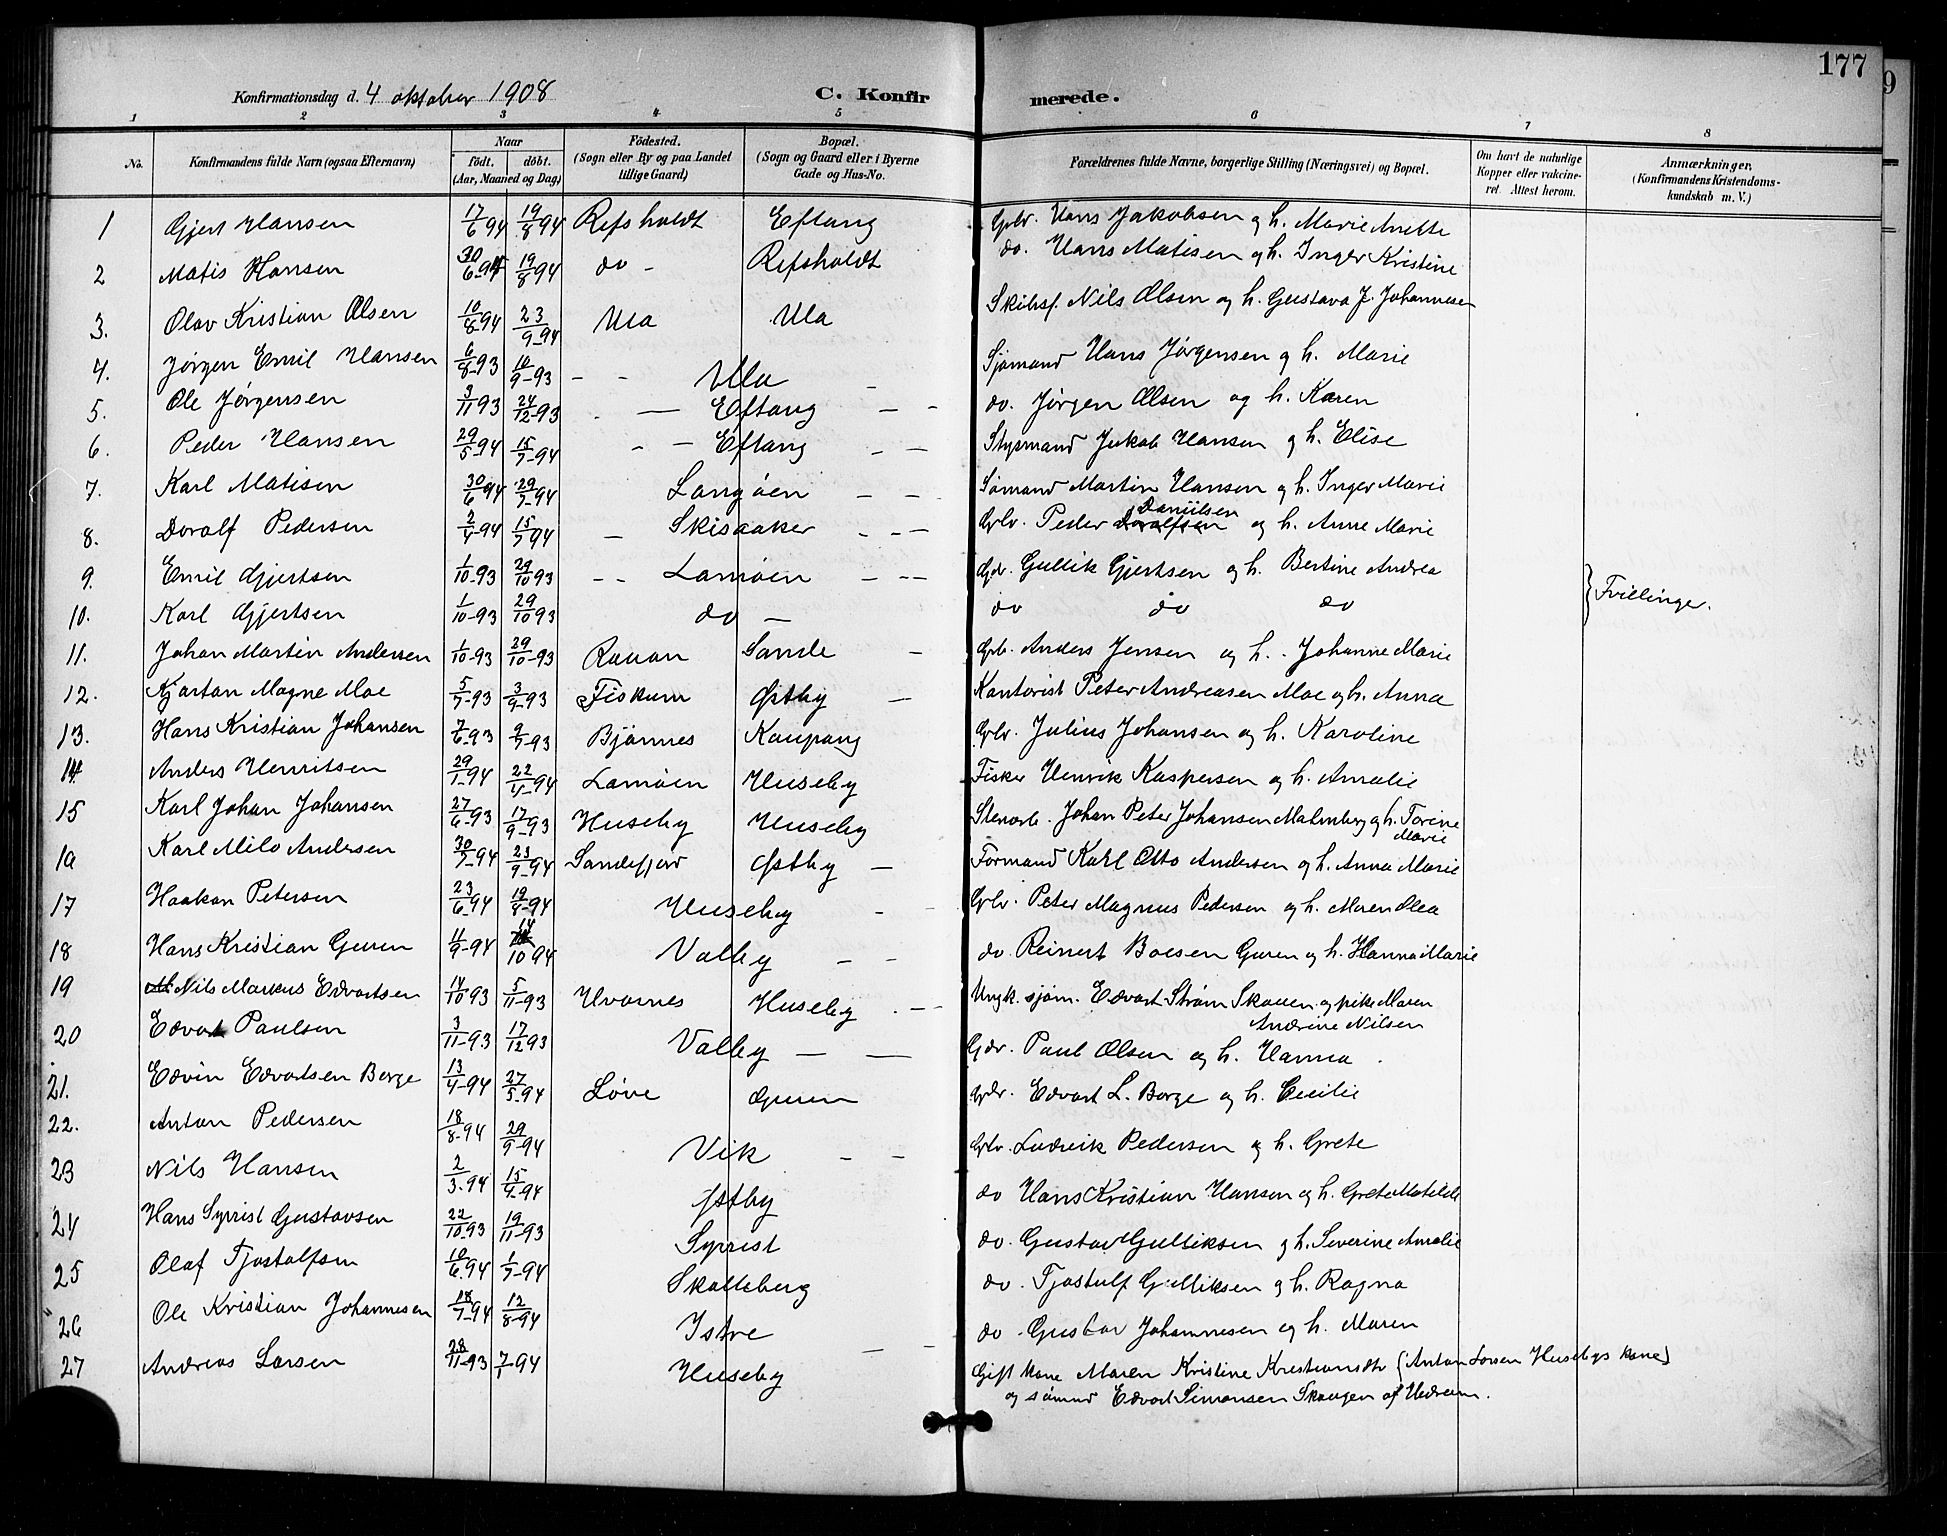 177
9
Konfirmationsdag d. 4 oktober 1908 C. Konfirmerede.
1 2 3 4 5 6 7 8
No. Konfirmandens fulde Navn (ogsaa Efternavn) Naar födt. döbt. (Aar, Maaned og Dag) Födested. (Sogn eller By og paa Landet tillige Gaard) Bopæl. (Sogn og Gaard eller i Byerne Gade og Hus-No. Forældrenes fulde Navne, borgerlige Stilling (Næringsvei) og Bopæl. Om havt de naturlige Kopper eller vakcineret. Attest herom. Anmærkninger, (Konfirmandens Kristendomskundskab m. V.)
1 Gjert Hansen 17/6 94 19/8 94 Refsholdt Eftang Grbr. Hans Jakobsen og h. Marie Anette
2 Matis Hansen 30/6-94 19/8 94 do - Refsholdt do. Hans Matisen og h. Inger Kristine
3. Olav Kristian Olsen 10/8-94 23/9-94 Ula Ula Skibsf. Nils Olsen og h. Gustava J. Johannesen
4. Jørgen Emil Hansen 6/8-93 10/9-93 - - Ula - Sjømand Hans Jørgensen og h. Marie
5. Ole Jørgensen 3/11 93 24/12-93 - Eftang - - do. Jørgen Olsen og h. Karen
6. Peder Hansen 29/5-94 15/7-94 - - Eftang - - Stysmand Jakob Hansen og h. Elise
7. Karl Matisen 30/6 94 29/7-94 Langøen - - Sømand Martin Hansen og h. Inger Marie
8. Doralf Pedersen 2/4-94 15/7 94 - Skisaaker - - - Grbr. Peder Doralfsen Danielsen og h. Anne Marie
9. Emil Gjertsen 1/10-93 29/10 93 - - Lamøen - - - Gdr. Gullik Gjertsen og h. Bertine Andrea
10. Karl Gjertsen 1/10-93 29/10 93 do - do do do } Tvillinge.
11. Johan Martin Andersen 1/10-93 29/10-93 Rauan Sande - Grb. Anders Jensen og h. Johanne Marie
12. Kjartan Magne Moe 5/7-93 3/9-93 Fiskum Østby - Kontorist Peter Andreasen Moe og h. Anna
13. Hans Kristian Johansen 7/6-93 9/7-93 Bjønnes Kaupang Grbr. Julius Johansen og h. Karoline
14 Anders Henriksen 29/1-94 22/4-94 Lamøen Huseby Fisker Henrik Kaspersen og h. Amalie
15 Karl Johan Johansen 27/6-93 17/9-93 Huseby Huseby Stenarb. Johan Peter Johansen Malmberg og h. Torine Marie
16 Karl Milo Andersen 30/7-94 23/9-94 Sandefjord Østby - Formand Karl Otto Andersen og h. Anna Marie
17 Haakon Petersen 23/6-94 19/8-94 Huseby - - Grbr. Peter Magnus Pedersen og h. Maren Olea
18 Hans Kristian Guren 11/9-94 14/10 94 Valby - - do. Reinert Boesen Guren og h. Hanna Marie
19 Nils Markus Edvartsen 14/10 93 5/11-93 Hvarnes Huseby - - Ungk. sjøm. Edvart Strøm Skauen og pike Maren Andrine Nilsen
20 Edvart Paulsen 3/11-93 17/12 93 Valby - - Gdr. Paul Olsen og h. Hanna.
21. Edvin Edvartsen Borge 13/4-94 27/5-94 Løve Guren Gdr. Edvart L. Borge og h. Cecilie
22. Anton Pedersen 18/8-94 29/9-94 Vik - - Grbr. Ludvik Pedersen og h. Grete
23 Nils Hansen 2/3-94 15/4-94 Østby do Hans Kristian Hansen og h. Grete Matilde
24 Hans Syrrist Gustavsen 22/10-93 19/11-93 Syrrist do. Gustav Gulliksen og h. Severine Amalie
25 Olaf Tjostolfsen 10/6-94 1/7-94 Skalleberg do. Tjostulf Gulliksen og h. Ragna
26 Ole Kristian Johannesen 18/7-94 12/8-94 Istre do. Gustav Johannesen og h. Maren
27 Andreas Larsen 28/11-93 7/1-94 Huseby - - Gift kone Maren Kristine Kristiansdtr (Anton Larsen Husebys kone)
og sømnd Edvart Simonsen Skaugen af Hedrum.